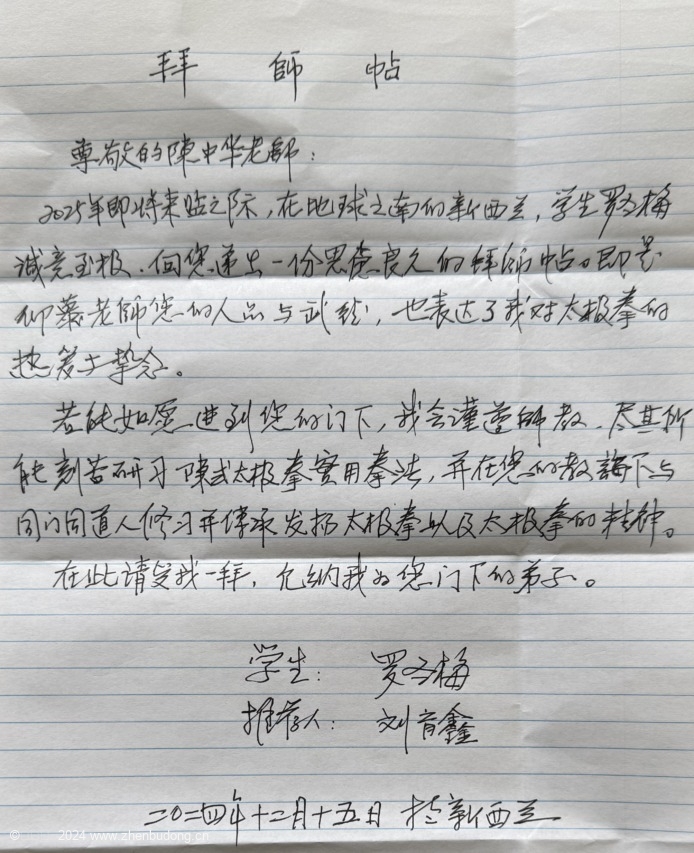 拜 師 帖
尊敬的陳中华老師：
2025年即将来临之际，在地球之南的新西兰，学生罗冬梅
诚意至极、向您递上一份思虑良久的拜師帖。即是
仰慕老師您的人品与武德，也表达了我对太极拳的
热爱与挚念。
若能如愿进到您的门下，我会谨遵師教、尽其所
能刻苦研习陳式太极拳实用拳法，并在您的教誨下与
同门同道人修习并传承发扬太极拳以及太极拳的精神。
在此请受我一拜，允纳我为您门下的弟子。
学生： 罗冬梅
推荐人： 刘育鑫
二〇二四年十二月十五日 於新西兰
© 2024 www.zhenbudong.cn